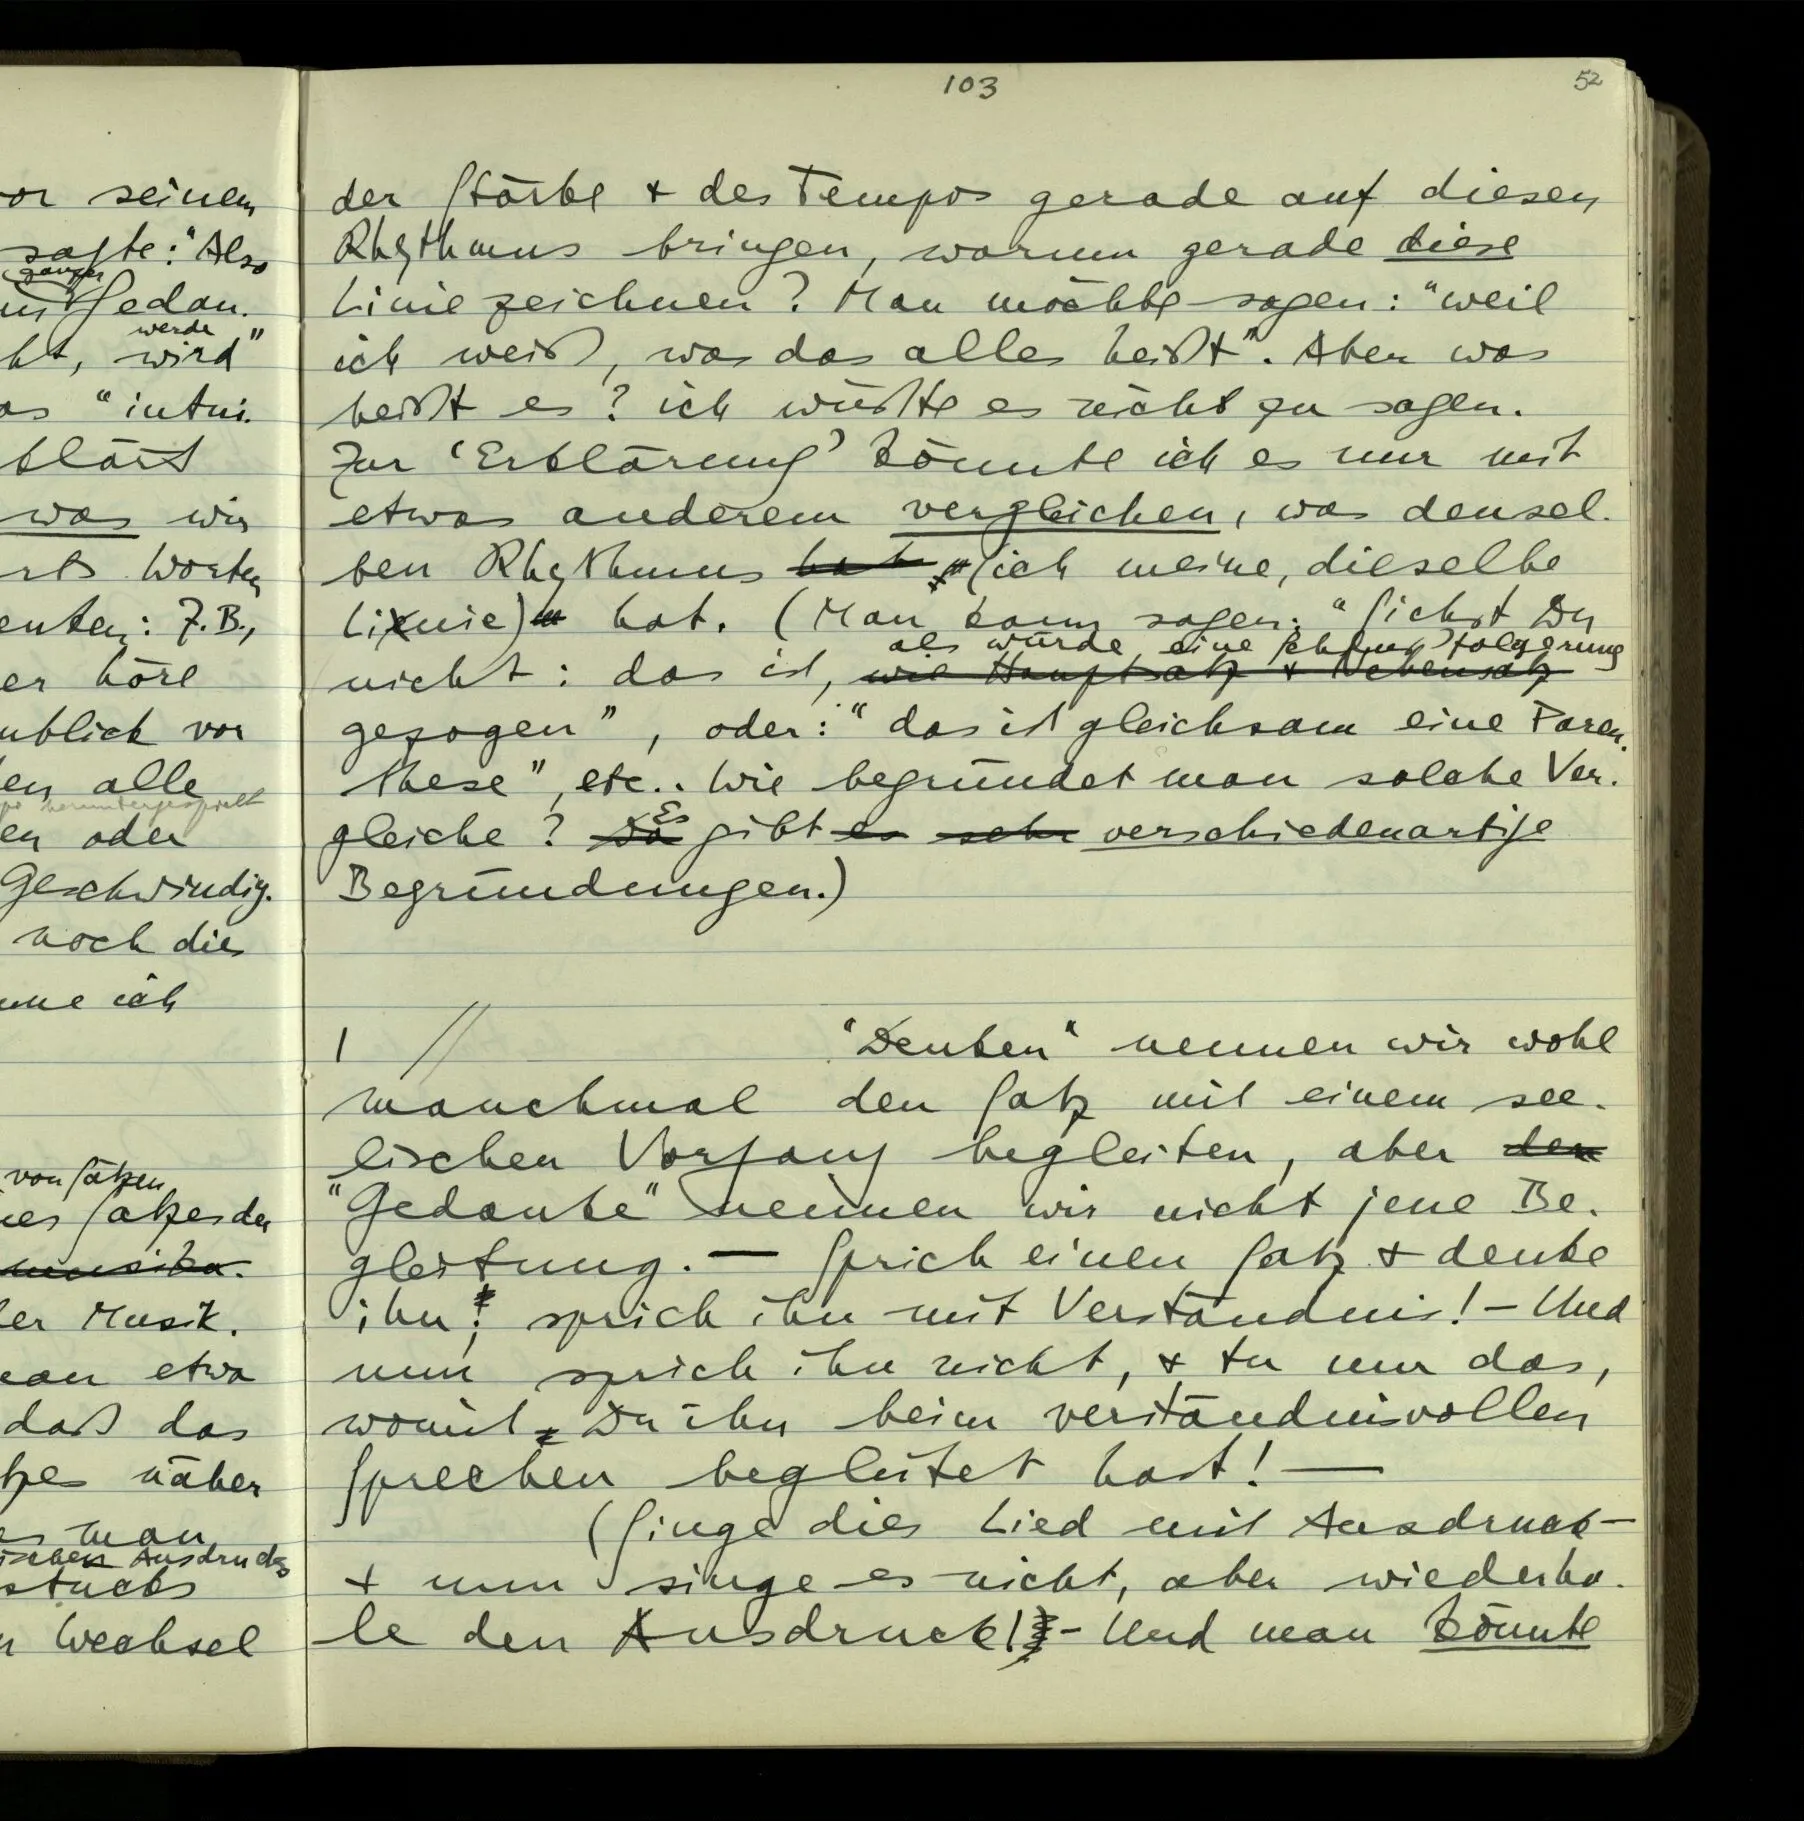 or seinem
sagte: "Also
ganzer
Gedan.
werde
ht, wird"
as "intui.
klärt
was wir
Worten
enten: Z.B.,
er höre
nblick vor
en alle
heruntergespielt
en oder
Geschwindig.
noch die
me ich
von Sätzen
nes Satzes den
musika.
er Musik.
man etwa
daß das
tzes näher
es man
ischen Ausdrucks
stücks
n Wechsel
103
52
der Stärke + des Tempos gerade auf diesen
Rhythmus bringen, warum gerade diese
Linie zeichnen? Man möchte sagen: "weil
ich weiß, was das alles heißt". Aber was
heißt es? ich wüßte es nicht zu sagen.
Zur 'Erklärung' könnte ich es nur mit
etwas anderem vergleichen, was densel.
ben Rhythmus hat (ich meine, dieselbe
Linie) hat. (Man kann sagen: "Siehst Du
als würde eine Schlußfolgerung
nicht: das ist, wie Hauptsatz + Nebensatz
gezogen", oder: "das ist gleichsam eine Paren.
these", etc.. Wie begründet man solche Ver.
Es
gleiche? Da gibt es sehr verschiedenartige
Begründungen.)
| // "Denken" nennen wir wohl
manchmal den Satz mit einem see.
lischen Vorgang begleiten, aber den
"Gedanke" nennen wir nicht jene Be.
gleitung. — Sprich einen Satz + denke
ihn; sprich ihn mit Verständnis! – Und
nun sprich ihn nicht, + tu nur das,
womit Du ihn beim verständnisvollen
Sprechen begleitet hast! —
(Singe dies Lied mit Ausdruck –
+ nun singe es nicht, aber wiederho.
le den Ausdruck! – Und man könnte